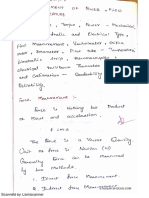 MENT OF FORCE,
Torque, Power - Mechanical,
Hydraulic and Electrical Type,
Flow Measurement, Venturimeter, Orifice
meter, Rotameter, Pitot tube - Temperature,
bimetallic strip, thermocouples,
electrical resistance Thermometer
and calibration - Readability
Reliability.
Force Measurement :-
Force is Nothing but Product
of Mass and acceleration.
The Force is a Vector Quantity
Unit of force is Newton (N)
Generally force can be Measured
by two methods.
1. Direct force Measurement
2. Indirect force Measurement
Scanned by CamScanner